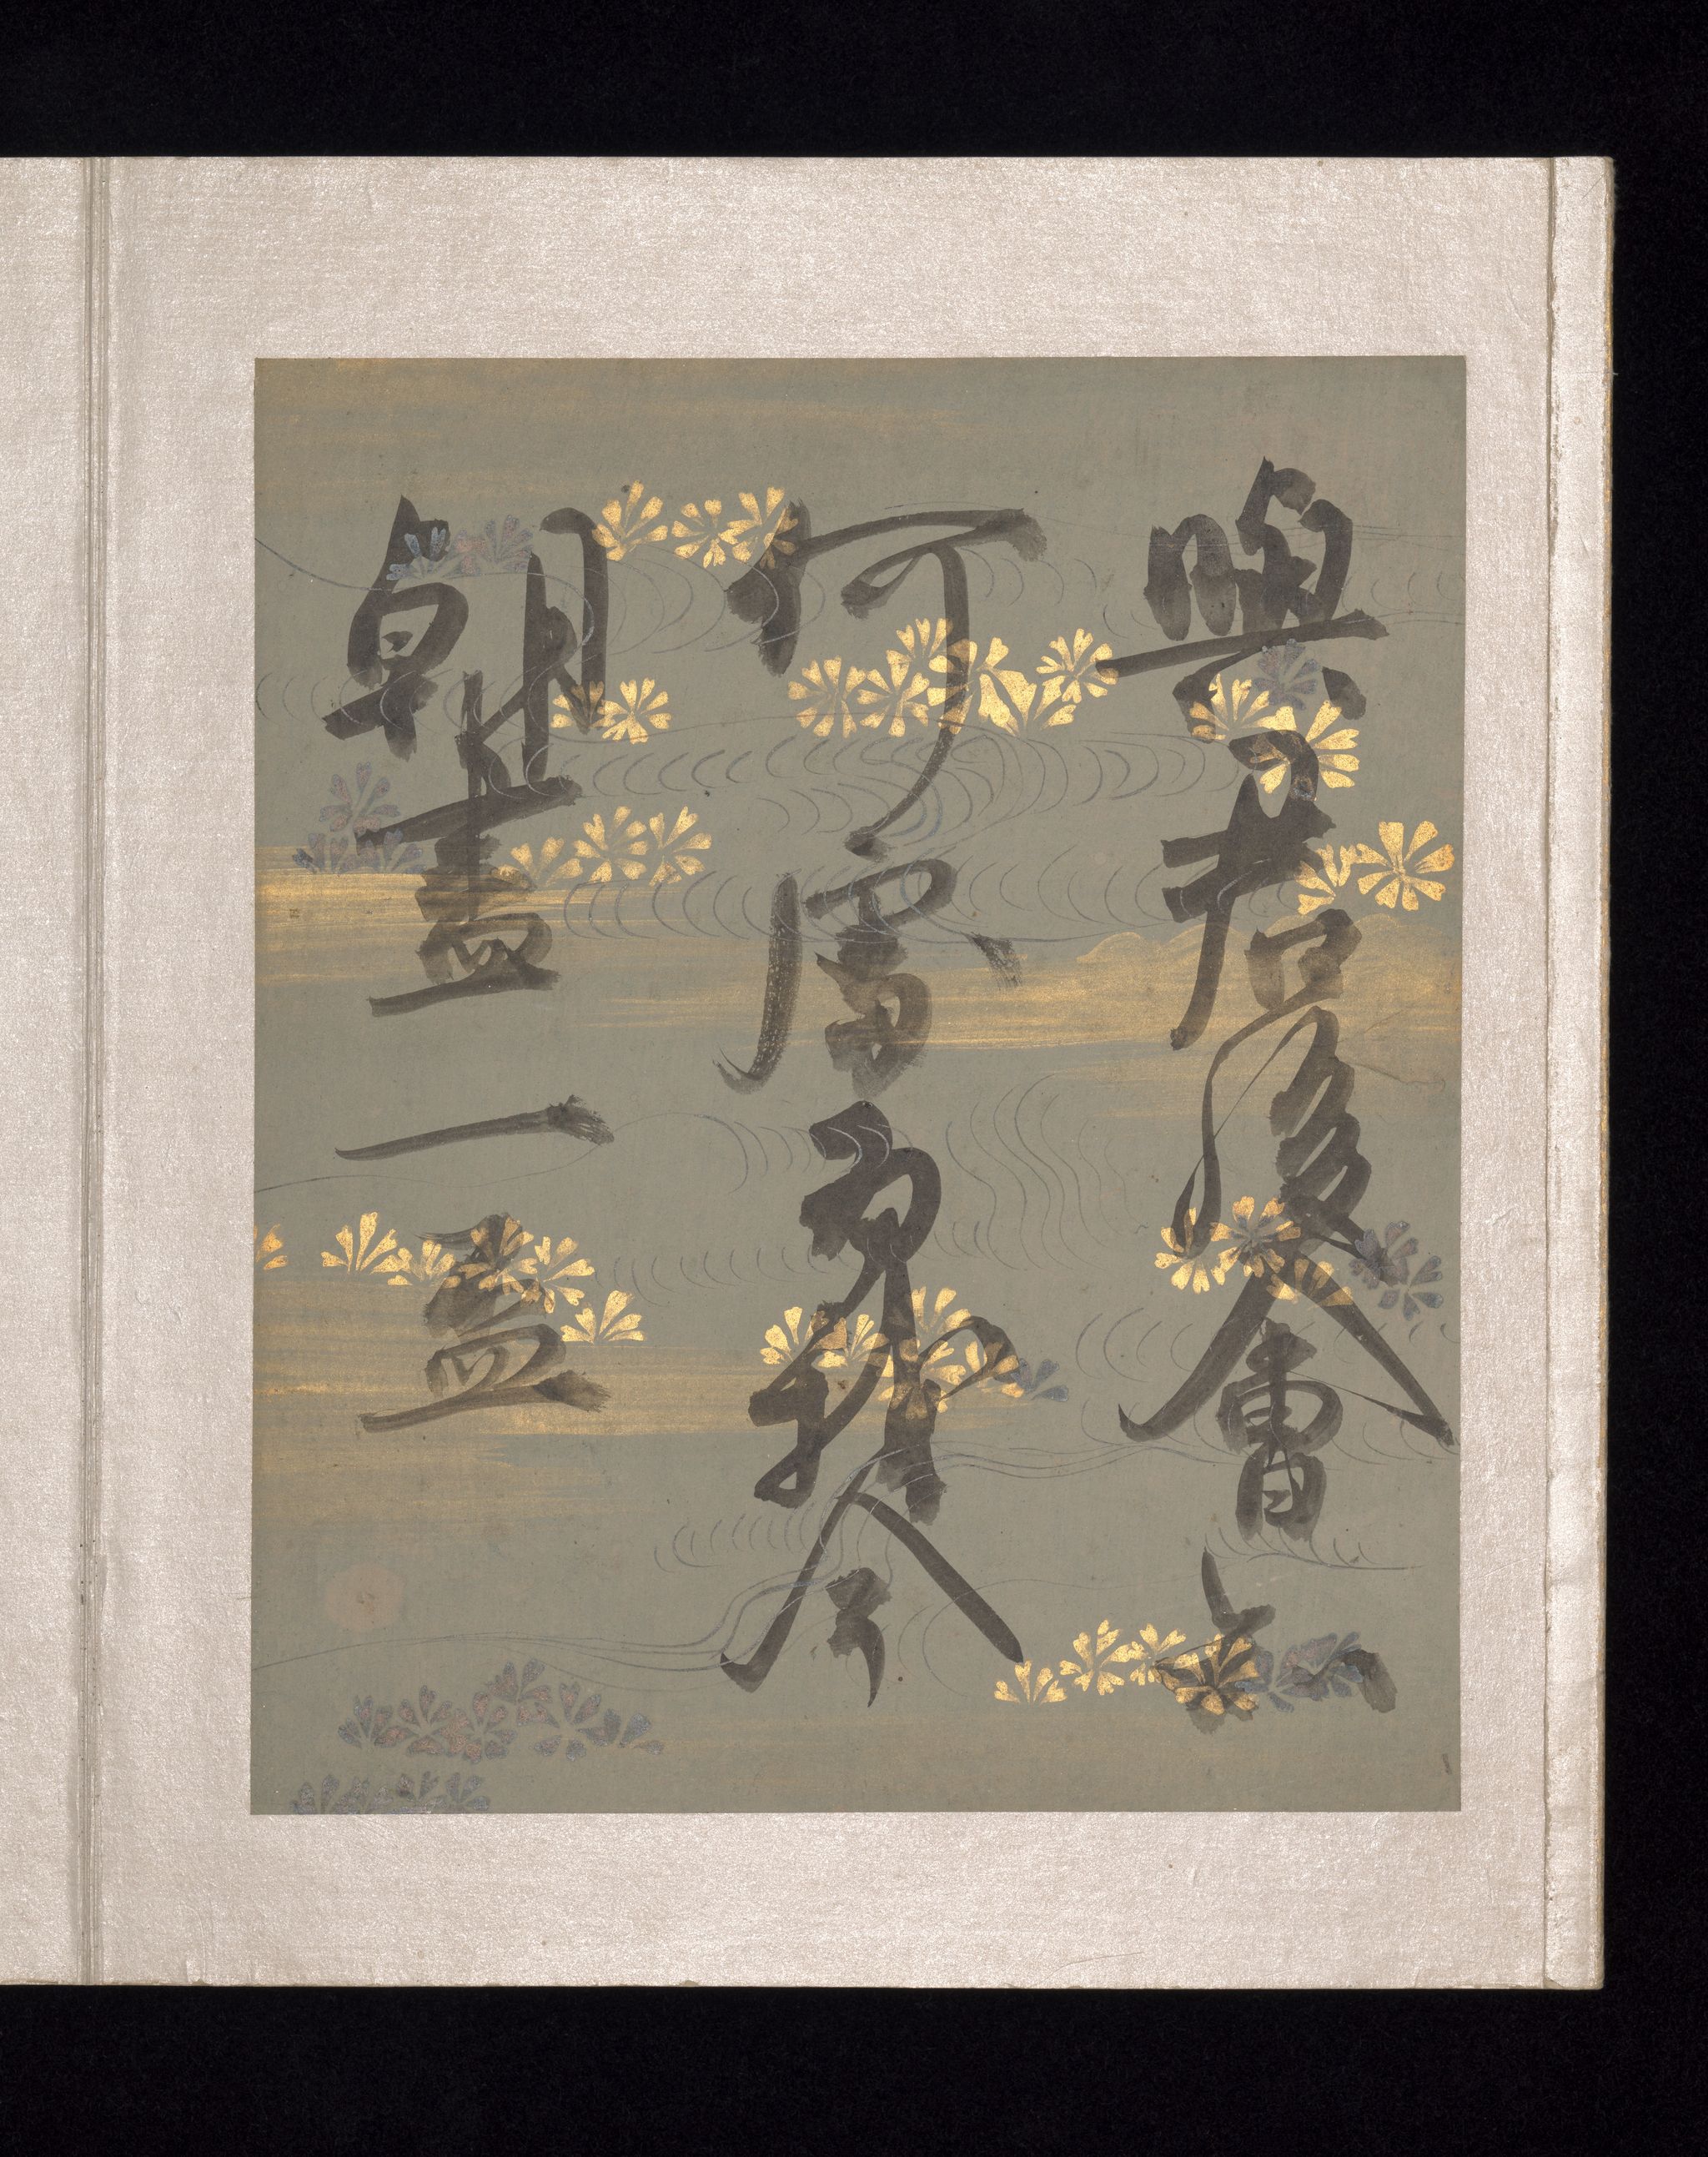 與君後會知
何處為我今
朝盡一盃